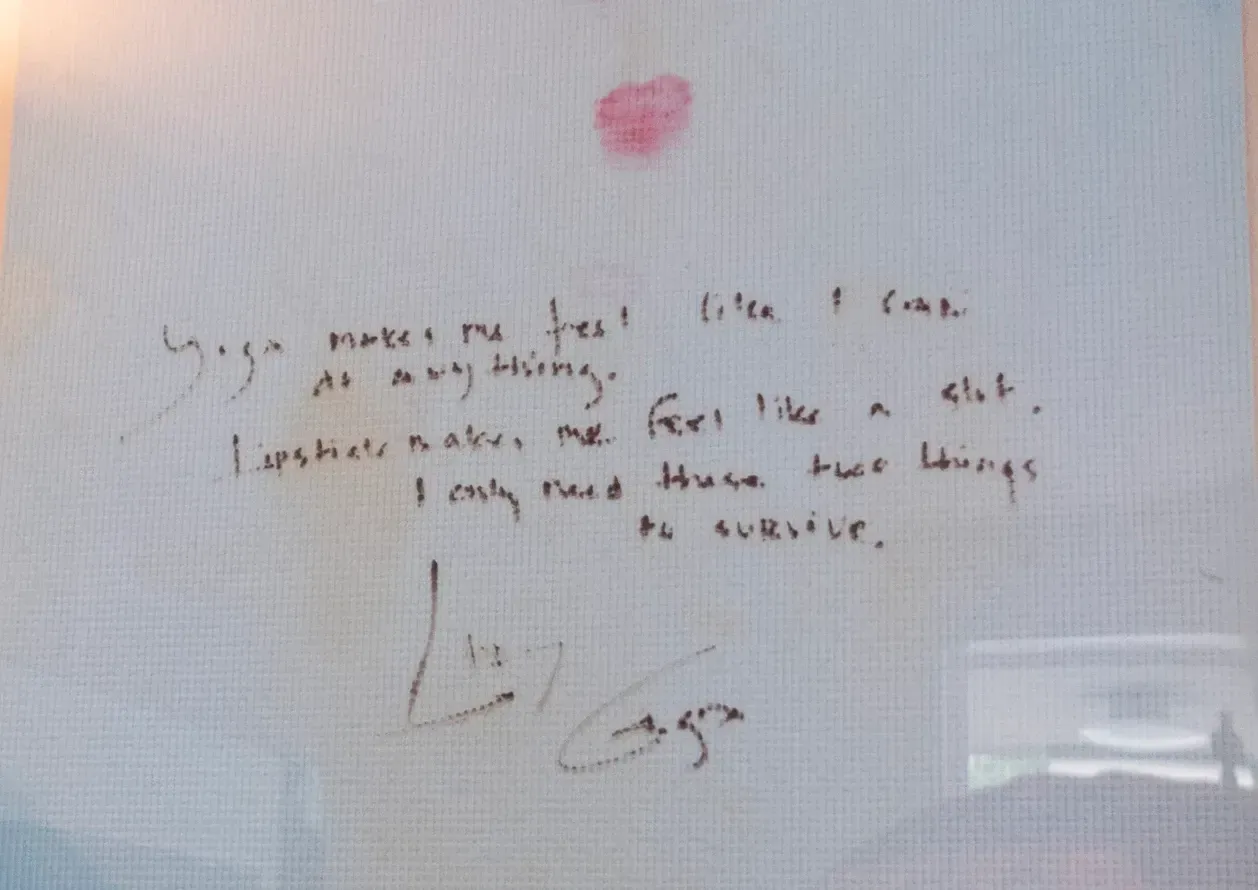 Yoga makes me feel like I can
do anything.
Lipstick makes me feel like a slut.
I only need these two things
to survive.
Lady
Gaga